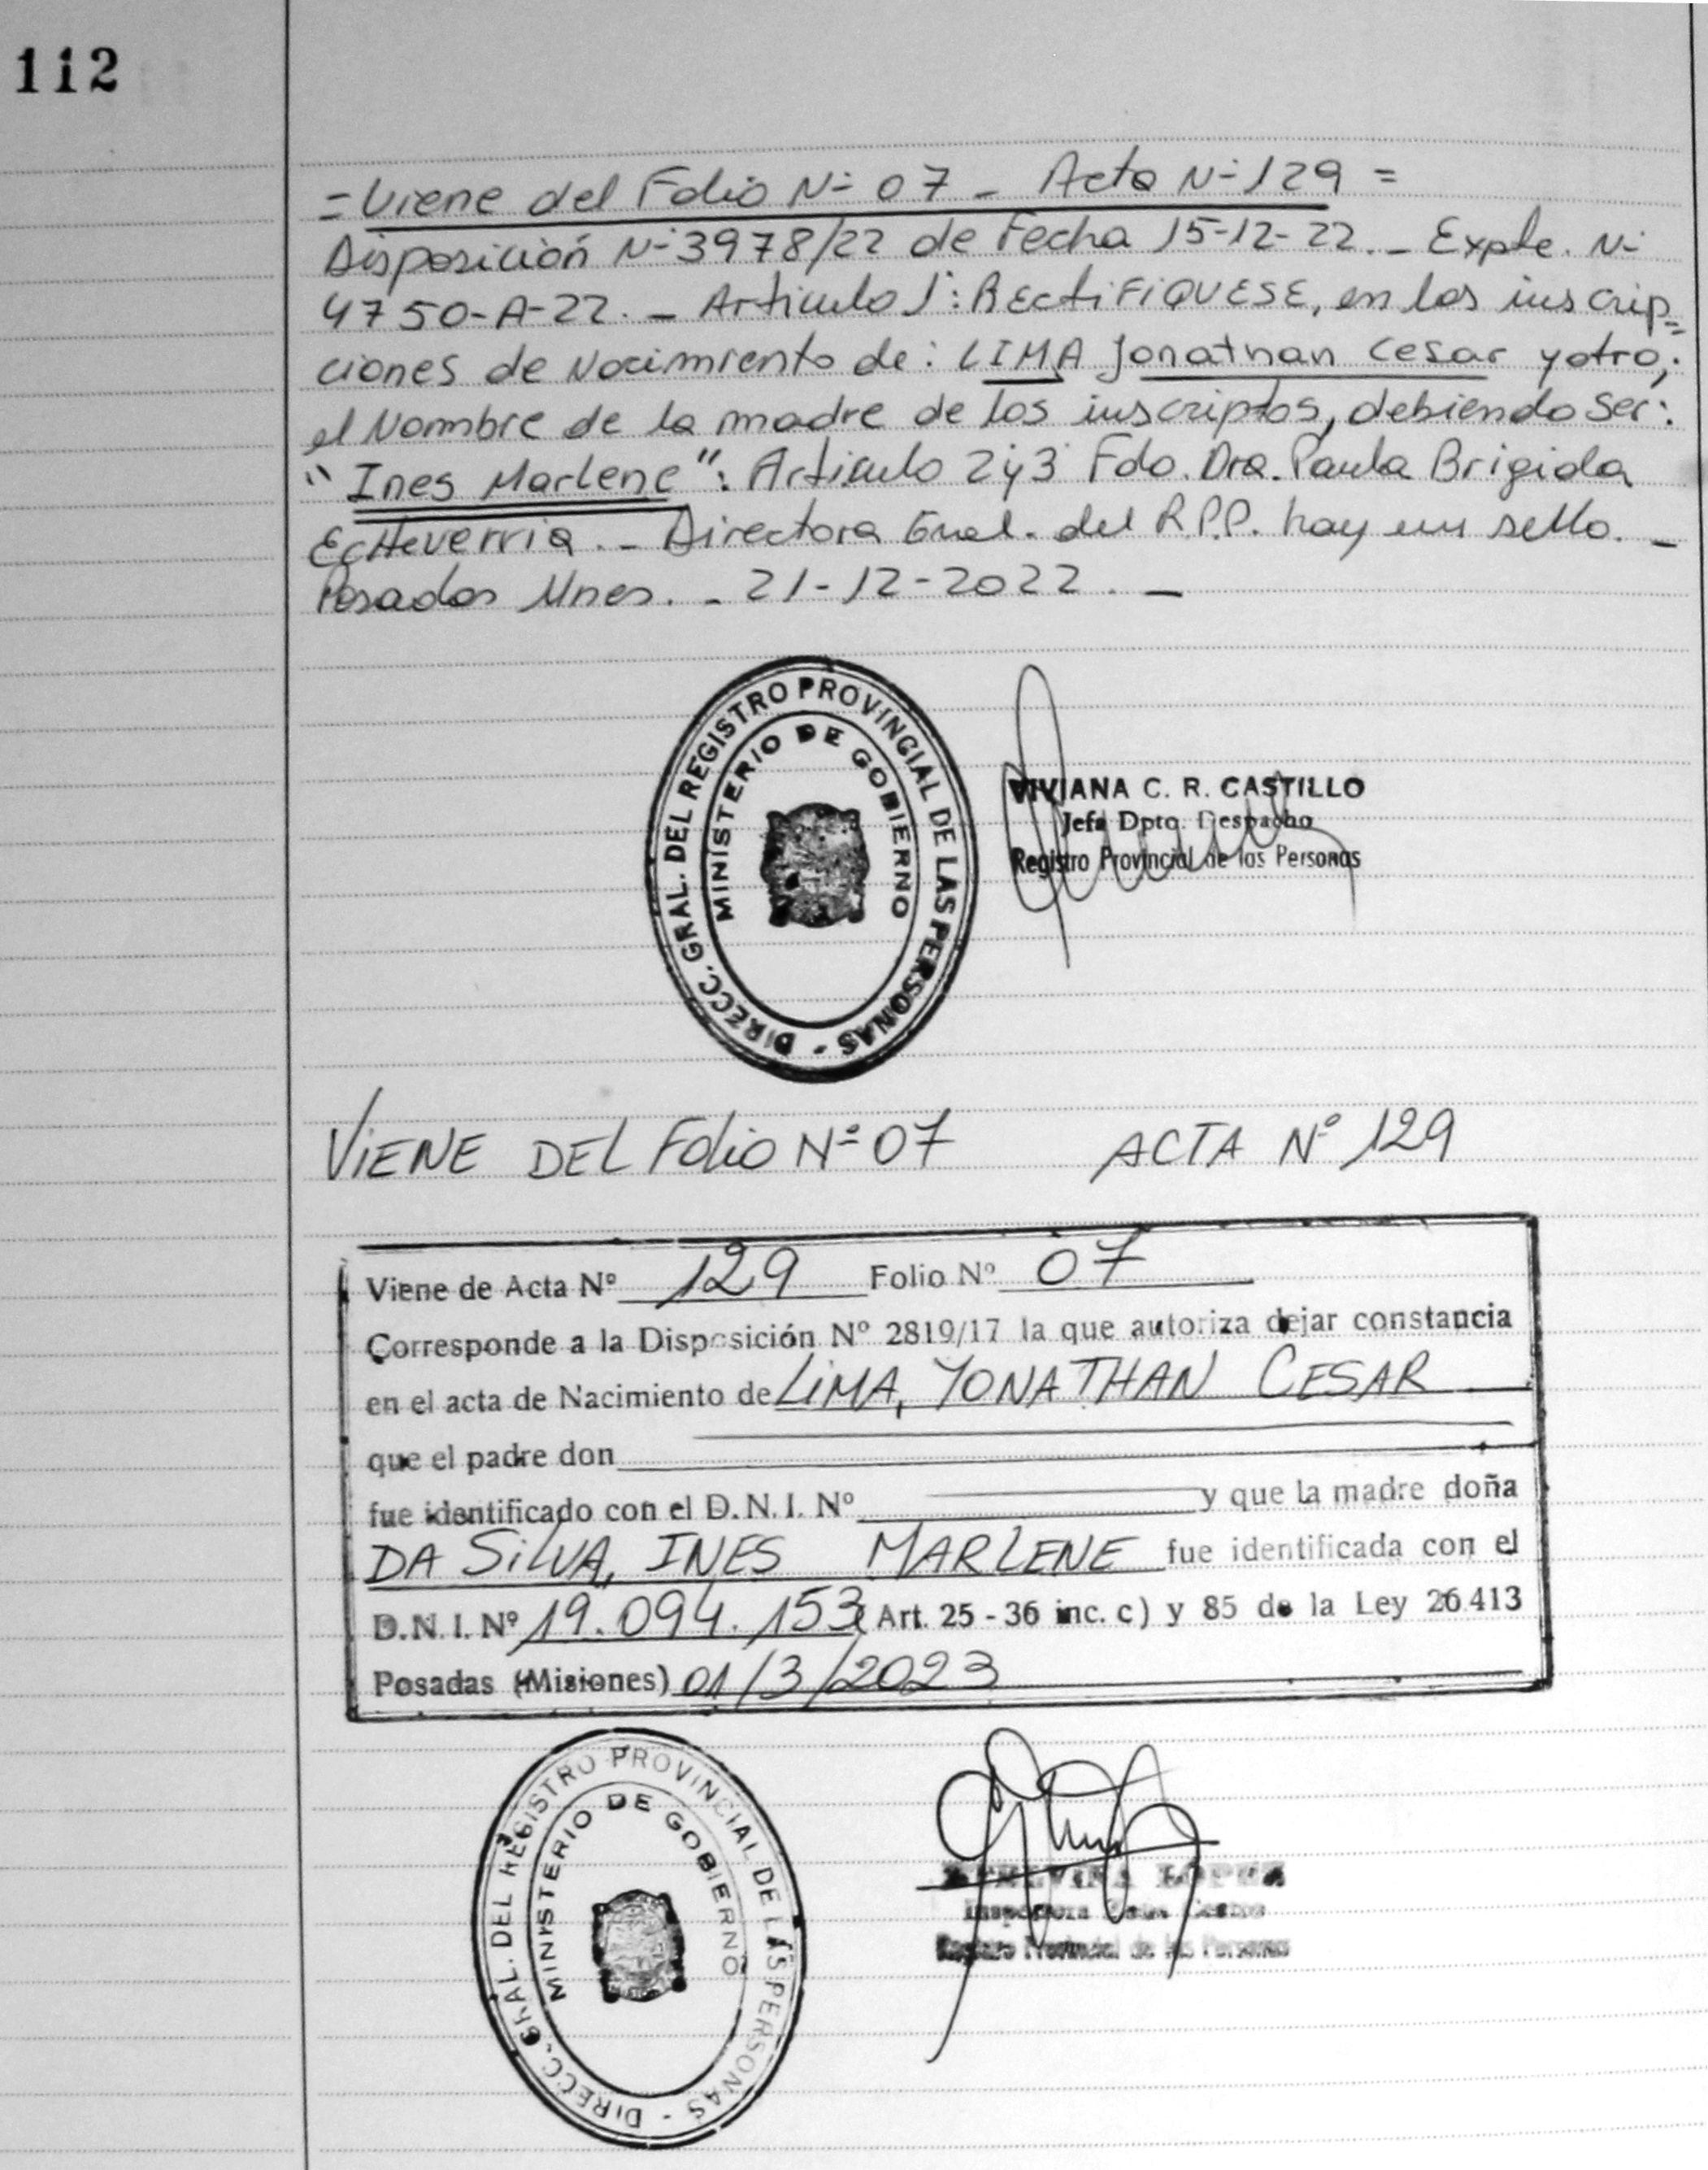 112
= Viene del Folio N- 07 - Acta N- 129 =
Disposición N- 3978/22 de Fecha 15-12-22. - Expte. N-
4750-A-22. - Articulo 1°: RECTIFIQUESE, en las inscrip=
ciones de Nacimiento de: LIMA Jonathan Cesar y otro;
el Nombre de la madre de los inscriptos, debiendo ser:
"Ines Marlene": Articulo 2 y 3 Fdo. Dra. Paula Brigida
Echeverria. - Directora Gral. del R.P.P. hay un sello. -
Posadas Mnes. - 21-12-2022. -
DIRECC. GRAL. DEL REGISTRO PROVINCIAL DE LAS PERSONAS -
MINISTERIO DE GOBIERNO
VIVIANA C. R. CASTILLO
Jefa Dpto. Despacho
Registro Provincial de las Personas
VIENE DEL Folio Nº 07 ACTA Nº 129
Viene de Acta Nº 129 Folio Nº 07
Corresponde a la Disposición Nº 2819/17 la que autoriza dejar constancia
en el acta de Nacimiento de LIMA, YONATHAN CESAR
que el padre don
fue identificado con el D.N.I. Nº y que la madre doña
DA SILVA, INES MARLENE fue identificada con el
D.N.I. Nº 19.094.153 (Art. 25 - 36 inc. c) y 85 de la Ley 26.413
Posadas (Misiones) 01/3/2023
DIRECC. GRAL. DEL REGISTRO PROVINCIAL DE LAS PERSONAS -
MINISTERIO DE GOBIERNO
LOPEZ
Inspectora
Registro Provincial de las Personas